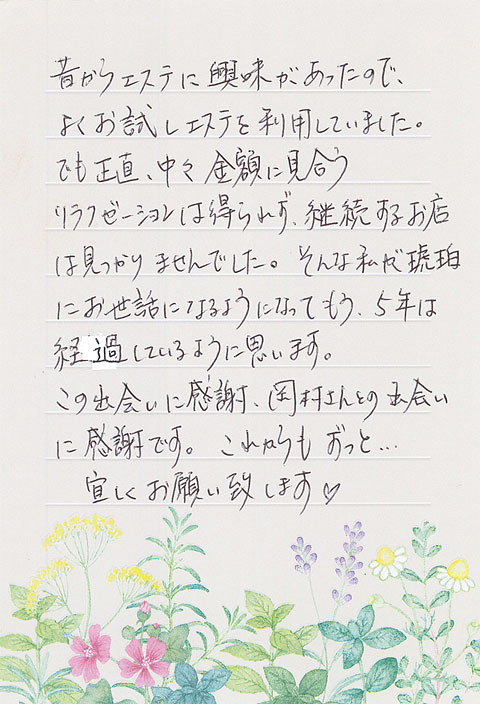 昔からエステに興味があったので、
よくお試しエステを利用していました。
でも正直、中々金額に見合う
リラクゼーションは得られず、継続するお店
は見つかりませんでした。そんな私が琥珀
にお世話になるようになってもう、5年は
経過しているように思います。
この出会いに感謝、岡村さんとの出会い
に感謝です。これからもずっと…
宜しくお願い致します♡